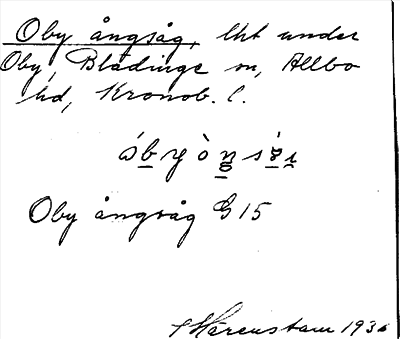 Oby ångsåg, lht under
Oby, Blädinge sn, Allbo
hd, Kronob. l.
Oby ångsåg G 15
Härenstam 1936